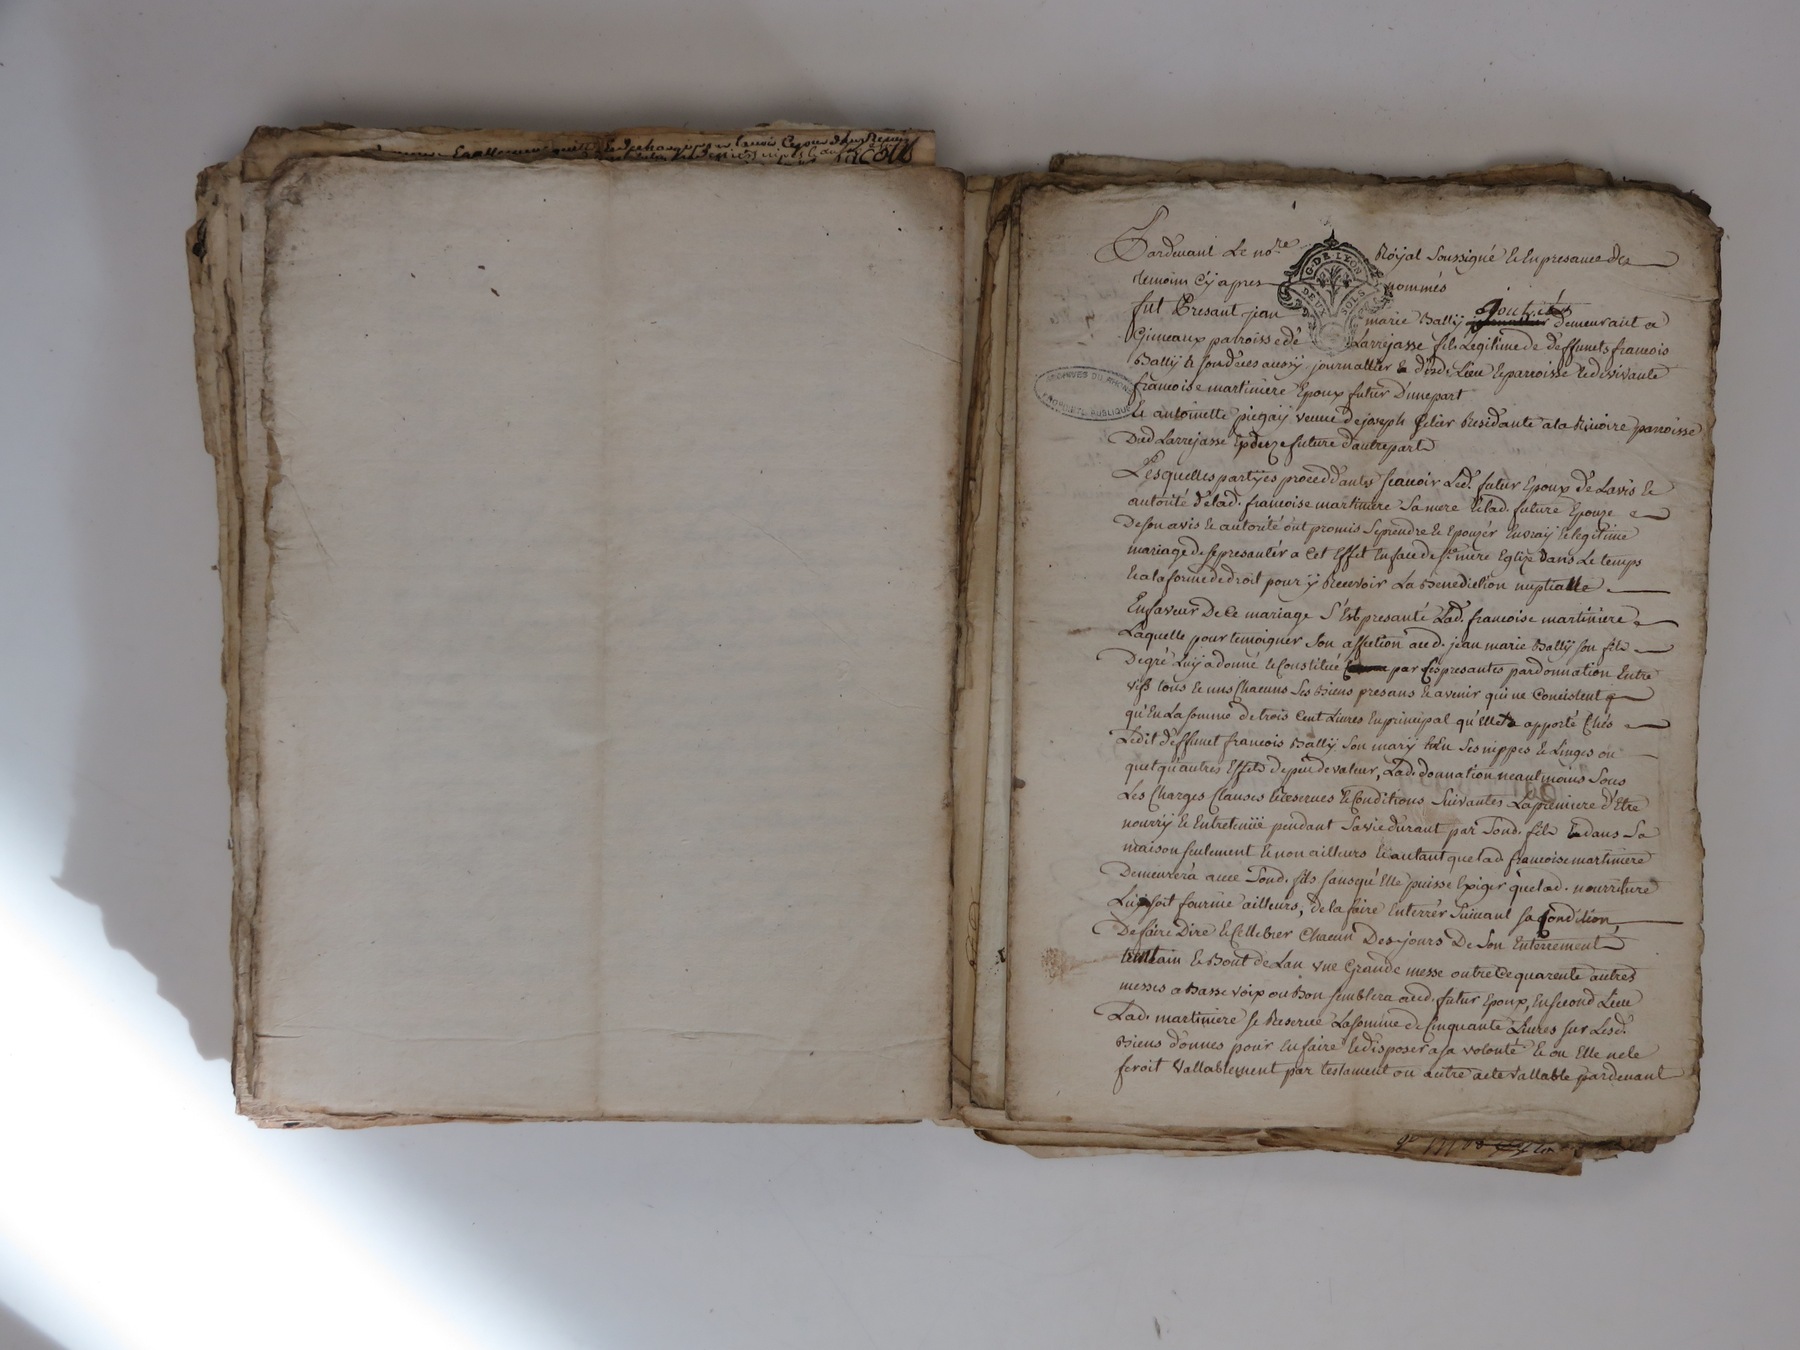 Pardevant Le nore Röyal Soussigné & En presance des
temoins Cy apres nommés
G.DE LYON
DEUX SOLS
fut Presant jean marie Bally demeurant a
Gimeaux paroisse de Larrejasse fils Legitime de deffunets francois
Bally & son deces aussy journallier & dud. Lieu & paroisse & de vivante
francoise martiniere Epoux futur D'unepart
ARCHIVES DU RHONE
PROPRIETE PUBLIQUE
& antoinette piegay veuve de joseph Residante a la paroisse
Dud Larrejasse Epouze future d'autre part
Lesquelles partÿes proceddantes scauoir Led. futur Epoux de Lavis &
autorité de lad. francoise martiniere Sa mere & lad. future Epouze
De son avis & autorité ont promis Se prendre & Epouzér En vray & legitime
mariage de se presantér a Cet Effet En face de ste mere Eglize dans Le temps
& a la forme de droit pour ÿ Recevoir La Benediction nuptialle
En faveur De Ce mariage S'Est presanté Lad. francoise martiniere
Laquelle pour temoigner Son affection aud. jean marie Bally son fils
De gré Luy a donné & Constitué par Ces presantes par donnation Entre
vifs tous & uns Chacuns Ses Biens presans & avenir qui ne Concistent
qu'En La somme de trois Cent Livres En principal qu'Elle a apporté Chés
Ledit deffunet francois Bally Son mary & En Ses nippes & Linges ou
quelqu'autres Effets de peu de valeur, Lad. donnation neaulmoins Sous
Les Charges Clauses & reserves & Conditions Suivantes La premiere d'Etre
nourry & Entretenüe pendant Sa vie durant par Sond. fils & dans Sa
maison seulement & non ailleurs & autant que lad francoise martiniere
Demeurera avec Sond. fils sans qu'Elle puisse Exiger que lad. nourriture
Luy soit fournie ailleurs, de la faire Enterrér Suivant sa Condition
De faire Dire & Cellebrer Chacun Des jours De Son Enterrement
& Bout de Lan vne Grande messe outre Ce quarente autres
messes a Basse voix ou Bon semblera aud. futur Epoux, En second Lieu
Lad. martiniere se Reserve La somme de Cinquante Livres sur Lesd.
Biens donnes pour En faire & disposer a sa volonté & ou Elle ne le
feroit vallablement par testament ou autre acte vallable pardevant